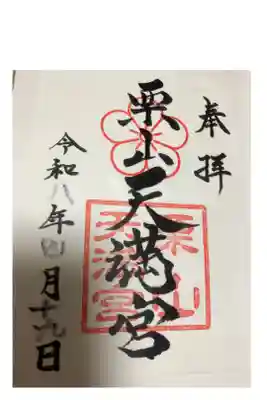 奉拝
栗山天満宮
令和八年四月十九日
栗山
天満宮